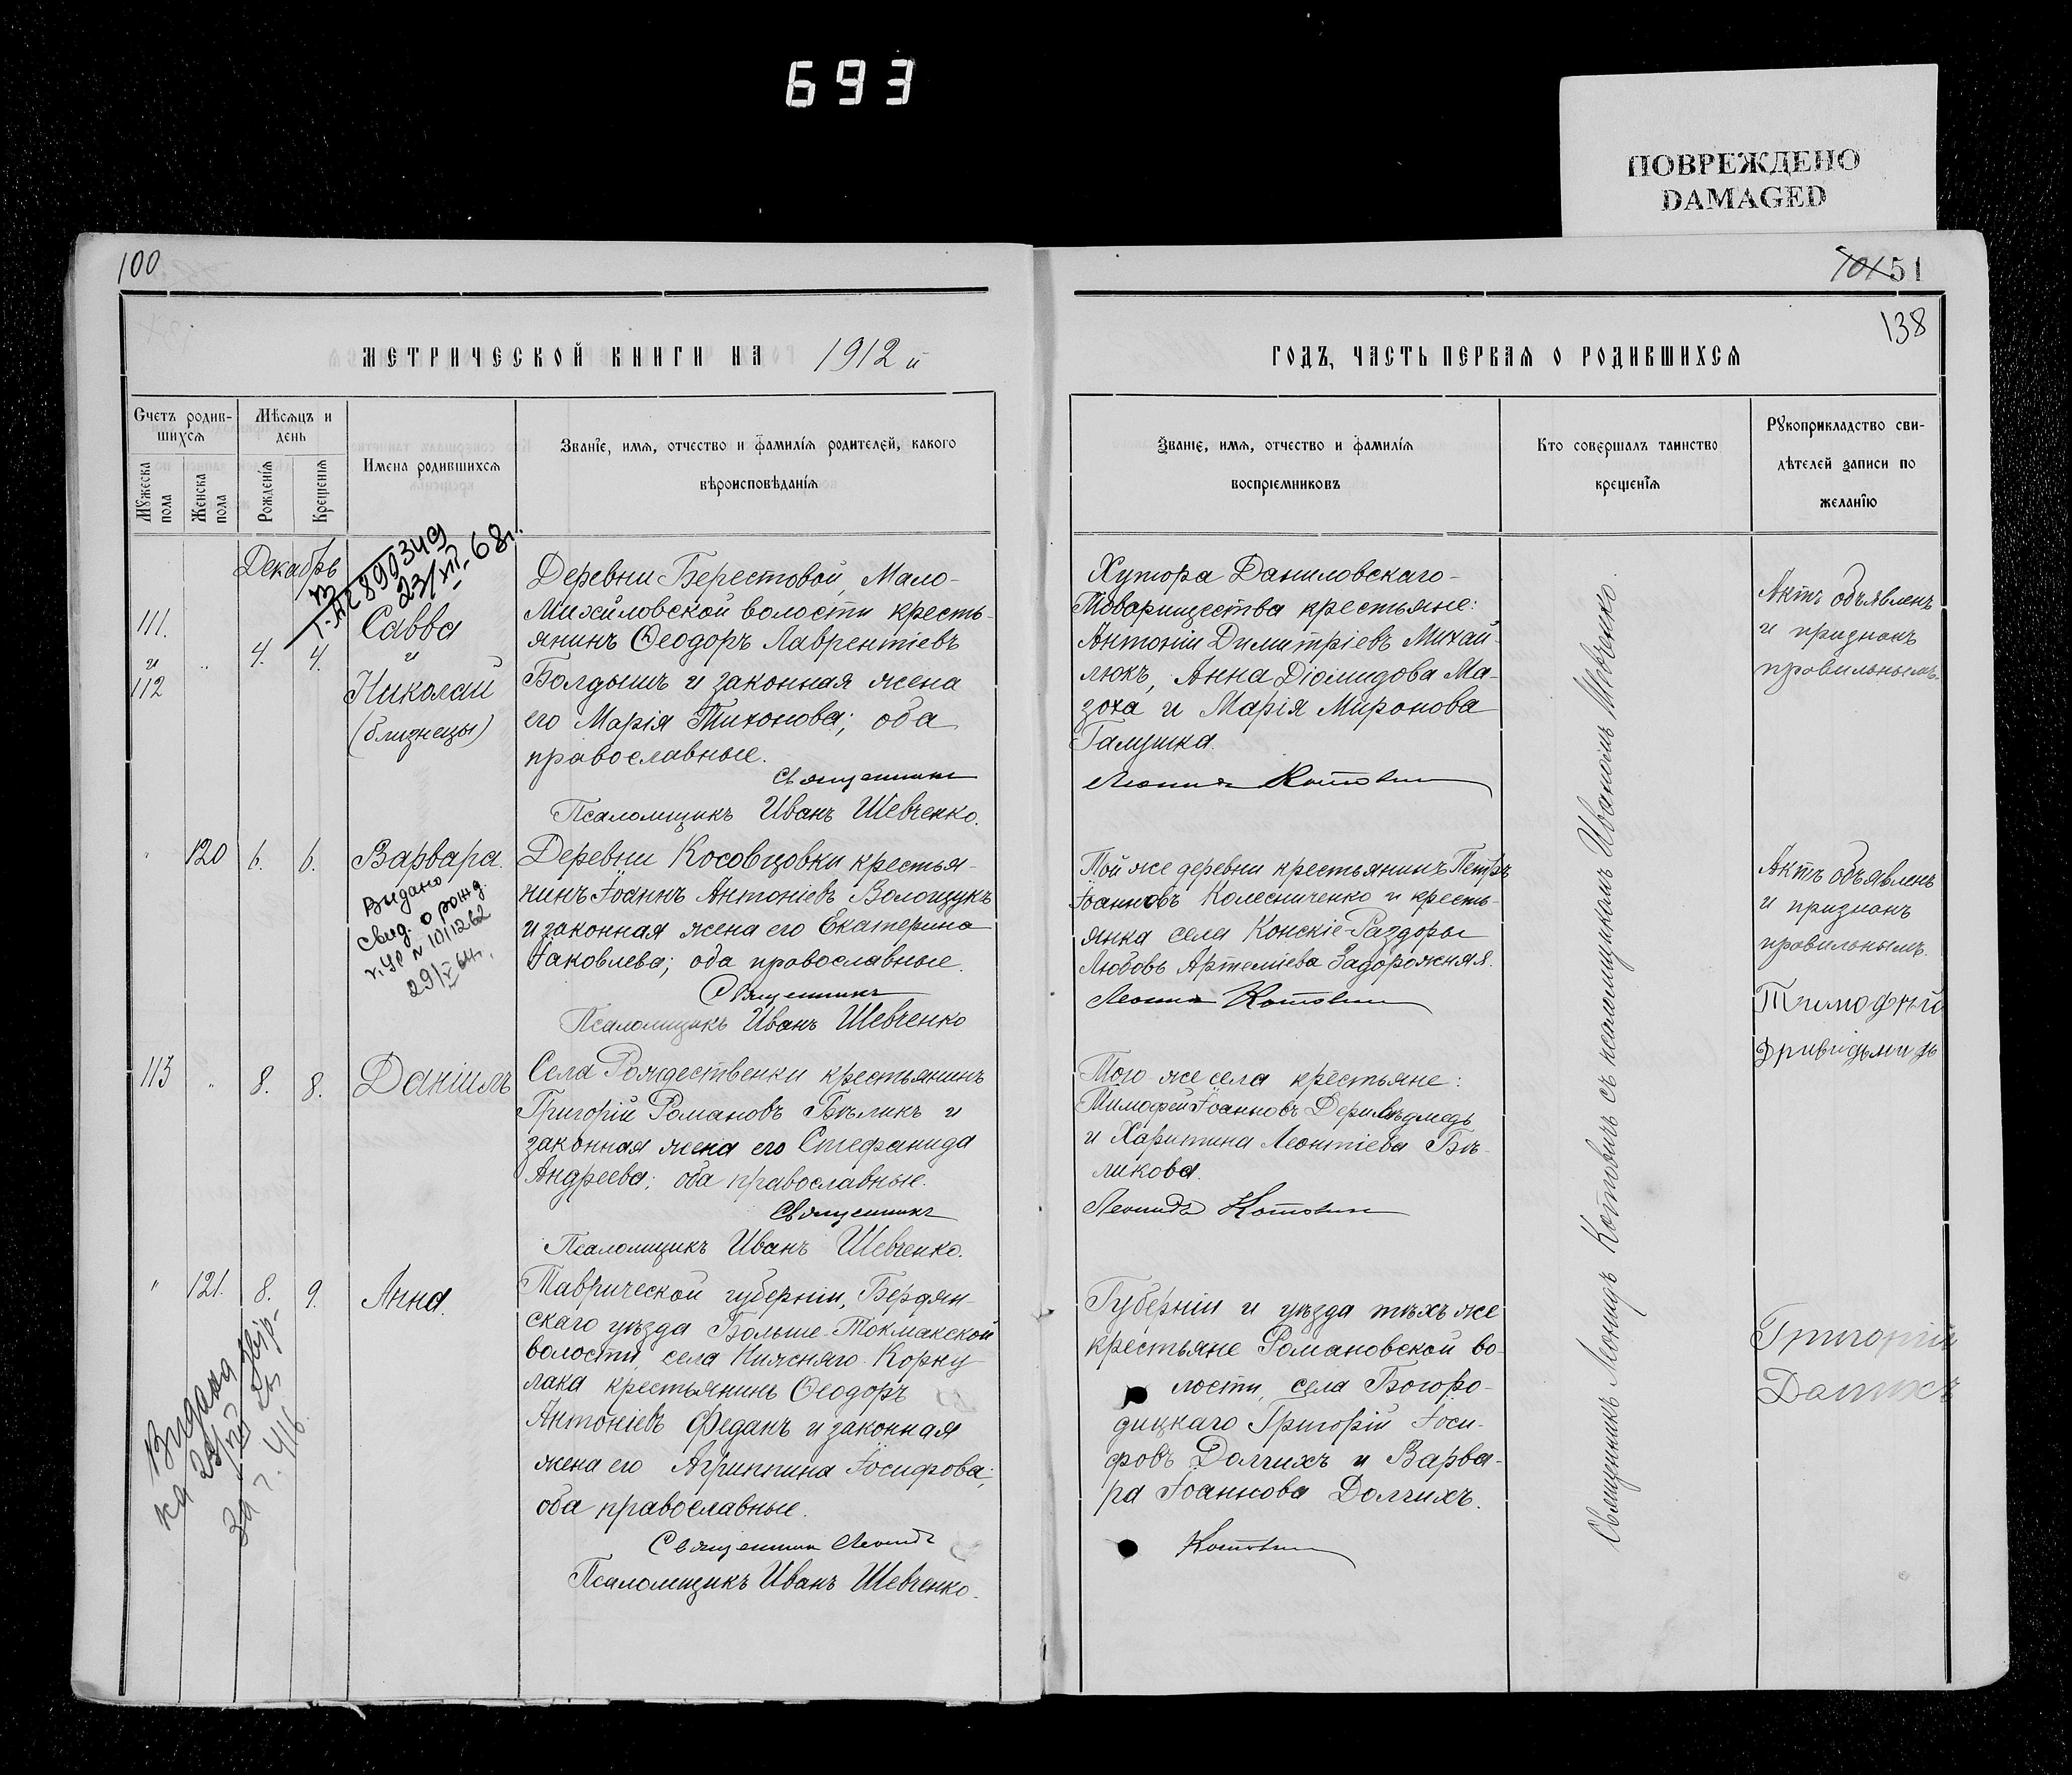 693
ПОВРЕЖДЕНО
DAMAGED
100
МЕТРИЧЕСКОЙ КНИГИ НА 1912 й
Счетъ родив-
шихсѧ
Мѣсѧцъ и
день
Мꙋжеска
пола
Женска
пола
Рожденїѧ
Крещенїѧ
Имена родившихсѧ
Званїе, имѧ, отчество и фамилїѧ родителей, какого
вѣроисповѣданїѧ
Декабрь
899349
23/XII-68г.
111.
и
112
"
4.
4.
Савва
и
Николай
(близнецы)
Деревни Берестовой, Мало-
Михайловской волости кресть-
янинъ Ѳеодоръ Лаврентіевъ
Болдышъ и законная жена
его Марія Тихонова; оба
православные.
Священникъ
Псаломщикъ Иванъ Шевченко.
"
120
6.
6.
Варвара.
Выдано
свид. о рожд.
29/X 64г.
Деревни Косовцовки крестья-
нинъ Іоаннъ Антоніевъ Волощукъ
и законная жена его Екатерина
Іаковлева; оба православные.
Священникъ
Псаломщикъ Иванъ Шевченко
113
"
8.
8.
Даніилъ
Села Рождественки крестьянинъ
Григорій Романовъ Бѣликъ и
законная жена его Стефанида
Андреева; оба православные.
Священникъ
Псаломщикъ Иванъ Шевченко.
"
121.
8.
9.
Анна.
Таврической губерніи, Бердян-
скаго уѣзда Больше-Токмакской
волости, села Нижняго Корку-
лака крестьянинъ Ѳеодоръ
Антоніевъ Феданъ и законная
жена его Агриппина Іосифова;
оба православные.
Священникъ Леонидъ
Псаломщикъ Иванъ Шевченко.
101 51
138
ГОДЪ, ЧАСТЬ ПЕРВАѦ О РОДИВШИХСѦ
Званїе, имѧ, отчество и фамилїѧ
воспрїемниковъ
Кто совершалъ таинство
крещенїѧ
Рꙋкоприкладство сви-
дѣтелей записи по
желанїю
Хутора Даниловскаго
Товарищества крестьяне:
Антоній Димитріевъ Михай-
люкъ, Анна Діомидова Ма-
зоха и Марія Миронова
Галушка.
Леонидъ Котовичъ
Актъ объявленъ
и признанъ
правильнымъ.
Той же деревни крестьянинъ Петръ
Іоанновъ Колесниченко и кресть-
янка села Конскіе-Раздоры
Любовь Артеміева Задорожняя.
Леонидъ Котовичъ
Актъ объявленъ
и признанъ
правильнымъ.
Того же села крестьяне:
Тимофей Іоанновъ Деривѣдмедь
и Харитина Леонтіева Бѣ-
ликова.
Леонидъ Котовичъ
Тимофѣй
Губерніи и уѣзда тѣхъ же
крестьяне Романовской во-
лости, села Богоро-
дицкаго Григорій Іоси-
фовъ Долгихъ и Варва-
ра Іоаннова Долгихъ.
Котовичъ
Григорій
Священникъ Леонидъ Котовичъ съ псаломщикомъ Иваномъ Шевченко.